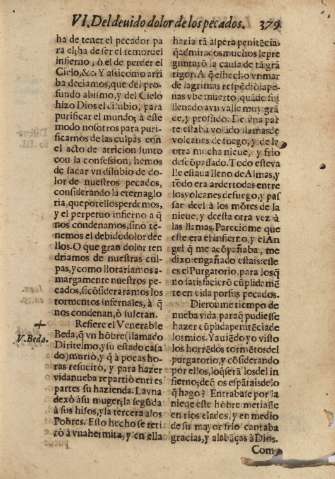 VI. Del deuido dolor de los pecados. 379
ha de tener el pecador pa
ra el, ha de ser el temor del
infierno, ò el de perder el
Cielo, &c. Y assi como arri
ba deciamos, que de el pro-
fundo abismo, y del Cielo
hizo Dios el dilubio, para
purificar el mundo; à este
modo nosotros para puri-
ficarnos de las culpas con
el acto de atricion junto
con la confession, hemos
de sacar vn dilubio de do-
lor de nuestros pecados,
considerando la eterna glo
ria, que por ellos perdimos,
y el perpetuo infierno a q̃
nos condenamos, sino te-
nemos el debido dolor de e
llos. O que gran dolor ten
driamos de nuestras cul
pas, y como lloráriamos a-
margamente nuestros pe-
cados, si cõsideraramos los
tormentos infernales, à q̃
nos condenan, ò suieran.
Refiere el Venerable
Beda, q̃ vn hõbre (llamado
Diritelmo, y su estado casa
do) murio, y q̃ à pocas ho-
ras resucitò, y para hazer
vida nueba repartiò en tres
partes su hazienda. La vna
dexò à su muger; la segũda
à sus hijos, y la tercera a los
Pobres. Esto hecho se reti
rò à vna hermita, y en ella
+
V. Beda.
hazia tã aspera penitẽcia-
q̃ admirados muchos le pre
guntaron la causa de tã grã
rigor. A q̃ el hecho vn mar
de lagrimas respõdiò: ape-
nas vbe muerto, quãdo fui
llevado a vn valle muy grã-
de, y profundo. De vna par
te estaba volãdo llamas de
volcanes de fuego, y de la
otra mucha nieue, y frio
desocupado. Todo esteva
lle estaua lleno de Almas, y
todo era ardertodas entre
los volcanes de fuego, y pas
sar de el à los mõtes de la
nieue, y de esta otra vez à
las llamas. Pareciome que
este era el infierro, y el An
gel q̃ me acõpañaba, me
dixo: engañado estais: esse
es el Purgatorio, para los q̃
no satisficierõ cũplida mẽ
te en vida por sus pecados.
Dieronme tiempo de
nueba vida, para q̃ pudiesse
hazer cũplida penitẽcia de
los mios. Ya uiẽdo yo visto
los horrẽdos tormẽtos del
purgatorio, y cõsiderando
por ellos, los q̃ serã los del in
fierno; de q̃ os espãtais de lo
q̃ hago? Entrabase por la
nieue este hõbre metiasse
en rios elados, y en medio
de su mayor frio cantaba
gracias, y alabãças à Dios.
Com-